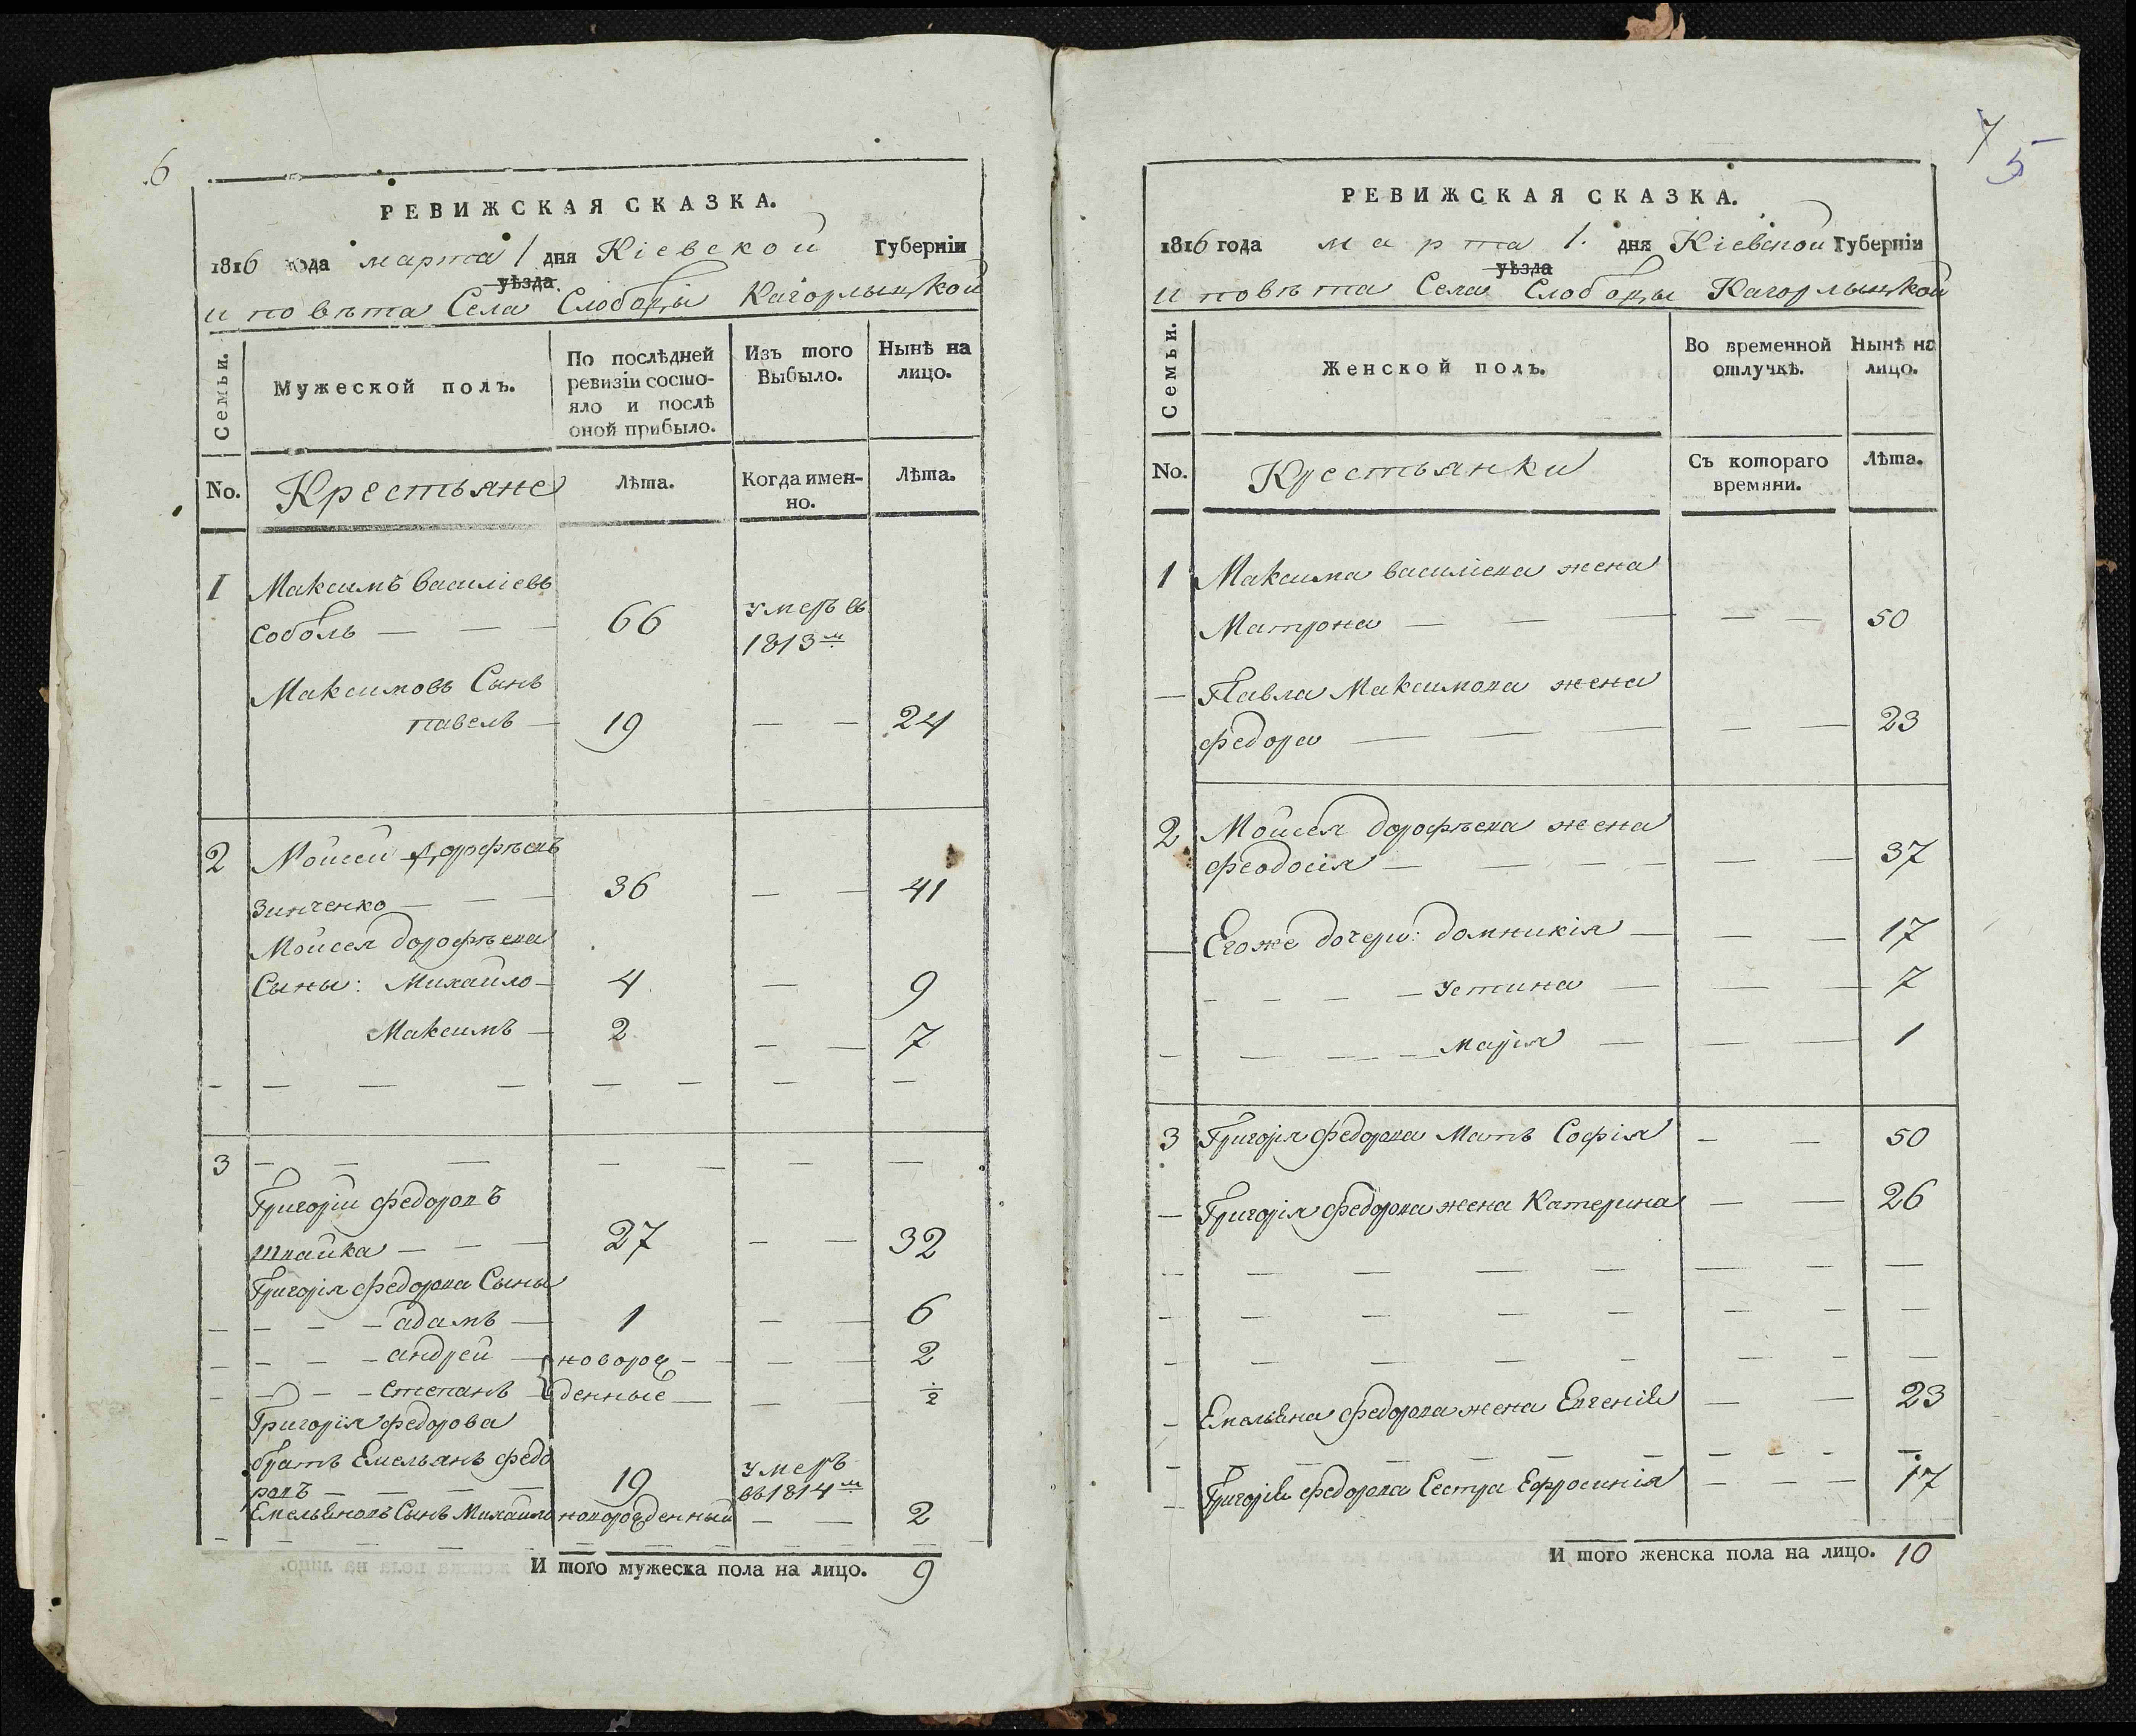 6
РЕВИЖСКАЯ СКАЗКА.
1816 года марта 1 дня Кіевской Губерніи
уѣзда
и повѣта Села Слободы Кагорлыцкой
Семьи.
Мужеской полъ.
По послѣдней
ревизіи состо-
яло и послѣ
оной прибыло.
Изъ того
Выбыло.
Нынѣ на
лицо.
No.
Крестьяне
Лѣта.
Когда имен-
но.
Лѣта.
1 Максимъ василіевъ
соболь — — — 66 умеръ въ
1813м
Максимовъ Сынъ
павелъ — 19 — — 24
2 Мойсей дорофѣевъ
Зинченко — — — 36 — — 41
Мойсея дорофѣева
Сыны: Михайло — 4 — 9
Максимъ — 2 — — 7
3
Григорій федоровъ
шпайка — — — 27 — — 32
Григорія федорова Сыны
адамъ — 1 — — 6
андрей — новорож — — 2
степанъ — денные — — ½
Григорія федорова
братъ Емельянъ федо
ровъ — — — 19 умеръ
въ 1814м
Емельяновъ Сынъ Михайло новорожденный — — 2
И того мужеска пола на лицо. 9
7
5
РЕВИЖСКАЯ СКАЗКА.
1816 года марта 1. дня Кіевской Губерніи
уѣзда
и повѣта Села Слободы Кагорлыцкой
Семьи.
Женской полъ.
Во временной
отлучкѣ.
Нынѣ на
лицо.
No.
Крестьянки
Съ котораго
времяни.
Лѣта.
1 Максима василіева жена
Матрона — — — — — 50
— Павла Максимова жена
федора — — — — — 23
2 Мойсея дорофѣева жена
феодосія — — — — — — 37
— Егоже дочери: домникія — — — 17
устина — — — 7
марія — — — 1
3 Григорія федорова Мать Софія — — 50
— Григорія федорова жена Катерина — — 26
— Емельяна федорова жена Евгенія — — 23
— Григорія федорова Сестра Ефросинія — — — 17
И того женска пола на лицо. 10